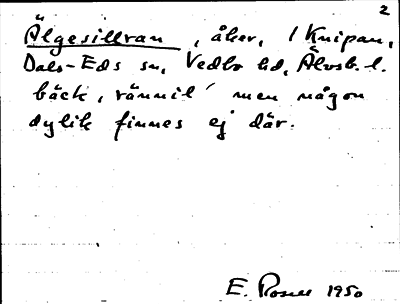 2
Älgesillran, åker, 1 Knipan,
Dals-Eds sn, Vedbo hd, Älvsb. l.
bäck, rännil' men någon
dylik finnes ej där.
E. Rosell 1950